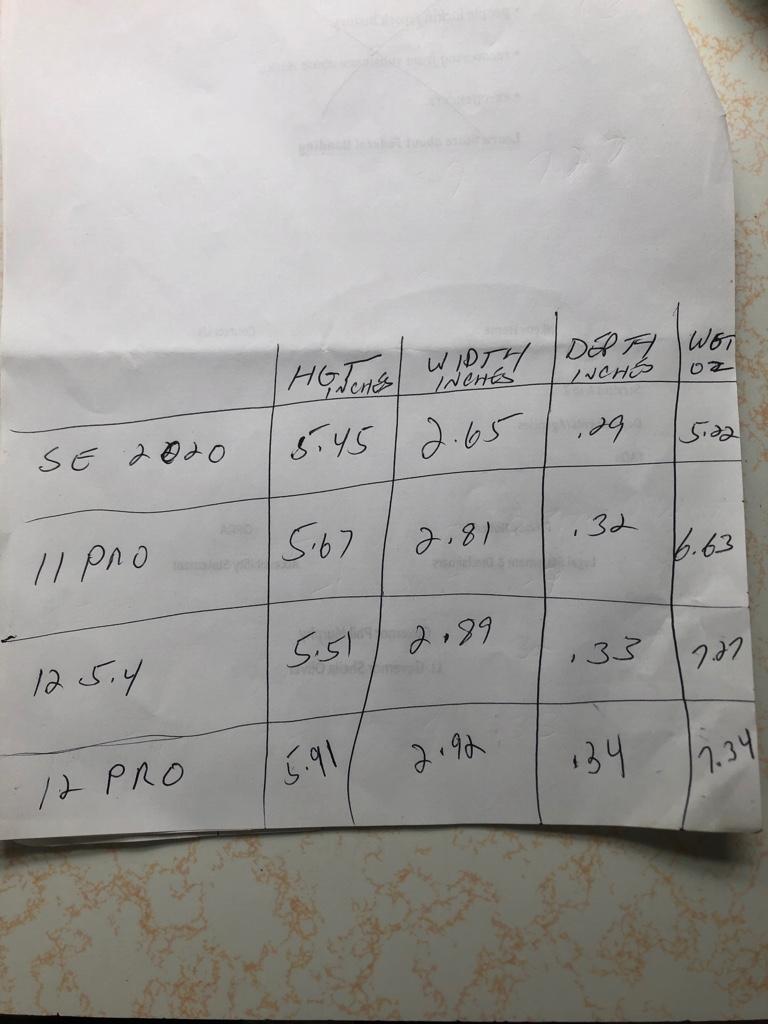 HGT WIDTH DEPTH WGT
INCHES INCHES INCHES OZ
SE 2020 5.45 2.65 .29 5.22
11 PRO 5.67 2.81 .32 6.63
12 5.4 5.51 2.89 .33 7.27
12 PRO 5.91 2.92 .34 7.34